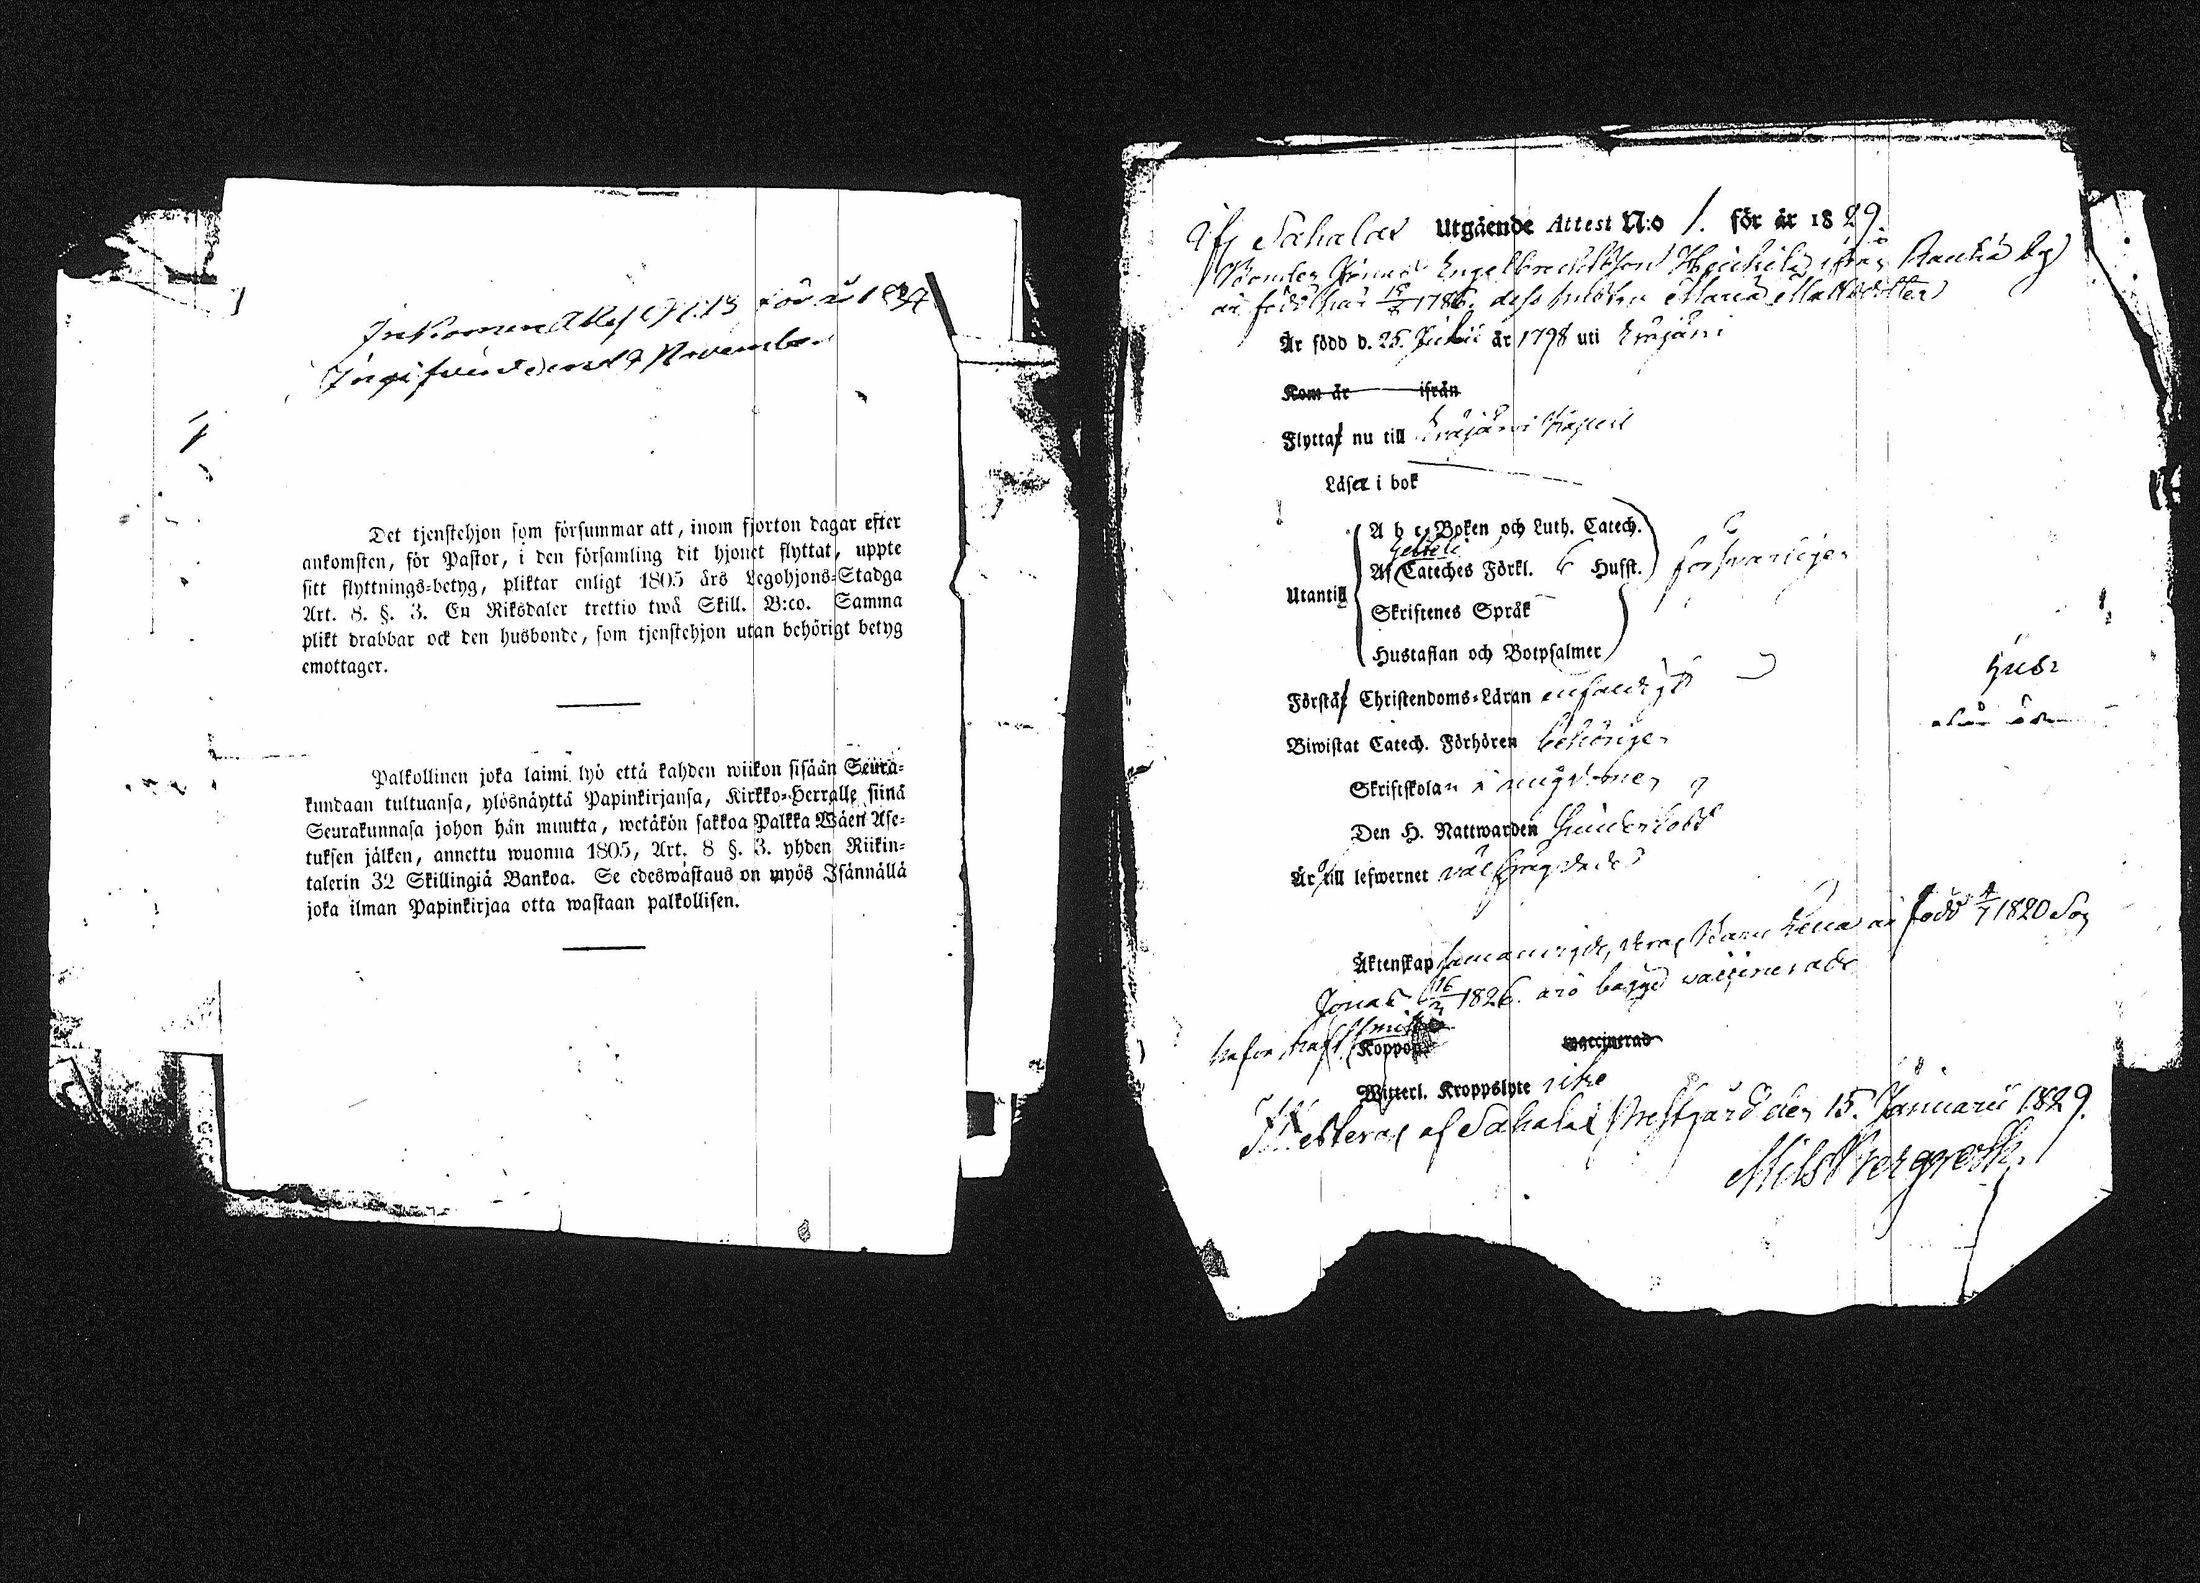 Inkommen Attest N:13 för år 1834
Ingifven den 9 November
Det tjenstehjon som försummar att, inom fjorton dagar efter
ankomsten, för Pastor, i den församling dit hjonet flyttat, uppte
sitt flyttnings-betyg, pliktar enligt 1805 års Legohjons-Stadga
Art. 8. §. 3. En Riksdaler trettio twå Skill. B:co. Samma
plikt drabbar ock den husbonde, som tjenstehjon utan behörigt betyg
emottager.
Palkollinen joka laimi lyö että kahden wiikon sisään Seura-
kundaan tultuansa, ylösnäyttä Papinkirjansa, Kirkko-Herralle siinä
Seurakunnasa johon hän muutta, wetäkön sakkoa Palkka Wäen Ase-
tuksen jälken, annettu wuonna 1805, Art. 8 §. 3. yhden Riikin-
talerin 32 Skillingiä Bankoa. Se edeswastaus on myös Isännällä
joka ilman Papinkirjaa otta wastaan palkollisen.
Af Sahalax Utgående Attest N:o 1. för år 1829.
Bonden Jonas Engelbrechtsson Heickilä ifrån Rautia by
är född här 1786. dess hustru Maria Mattsdotter
Är född d. 25. Julii år 1798 uti Eräjärvi
Kom år ifrån
Flyttar nu till Eräjärvi Kapell
Läser i bok
A b c, Boken och Luth. Catech.
Af Cateches Förkl. Husst. försvarligen
Utantill
Skriftenes Språk
Hustaflan och Botpsalmer
Förstår Christendoms-Läran enfaldigt
Biwistat Catech. Förhören behörigen
Skriftskolan i ungdomen
Den H. Nattwarden
Är till lefwernet välfrägdade
Äktenskap sammanvigde, deras Barn Lena är född 1820 Son
Jonas 1826. äro bägge vaccinerade
hafva haft Koppor waccinerad
Witterl. Kroppslyte icke
af Sahalax Prestgård den 15. Januarii 1829.
Nils Bergroth.